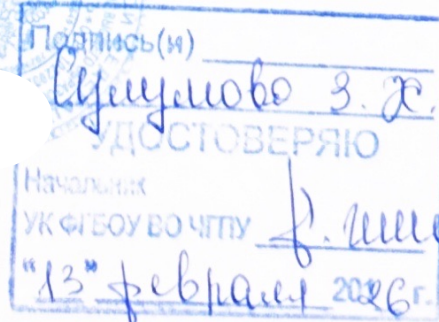 Подпись(и)
Сулумово З. Х.
УДОСТОВЕРЯЮ
Начальник
УК ФГБОУ ВО ЧГПУ
"13" февраля 2026 г.